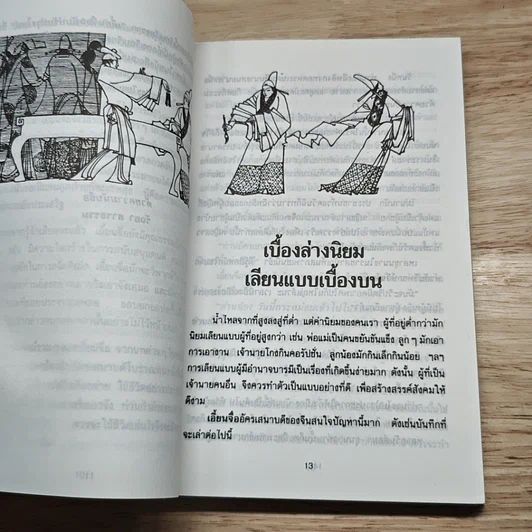 ด้วยความนับถือ
วิลยา ลาภธรรม
เบื้องล่างนิยม
เลียนแบบเบื้องบน
น้ำไหลจากที่สูงลงสู่ที่ต่ำ แต่ค่านิยมของคนเรา ผู้ที่อยู่ต่ำกว่ามัก
นิยมเลียนแบบผู้ที่อยู่สูงกว่า เช่น พ่อแม่เป็นคนขยันขันแข็ง ลูก ๆ มักเอา
การเอางาน เจ้านายโกงกินคอรัปชั่น ลูกน้องมักกินเล็กกินน้อย ฯลฯ
การเลียนแบบผู้มีอำนาจบารมีเป็นเรื่องที่เกิดขึ้นง่ายมาก ดังนั้น ผู้ที่เป็น
เจ้านายคนอื่น จึงควรทำตัวเป็นแบบอย่างที่ดี เพื่อสร้างสรรค์สังคมให้
ดีงาม
เอี้ยนจื่ออัครเสนาบดีของจีนสนใจปัญหานี้มาก ดังเช่นบันทึกที่
จะเล่าต่อไปนี้
13